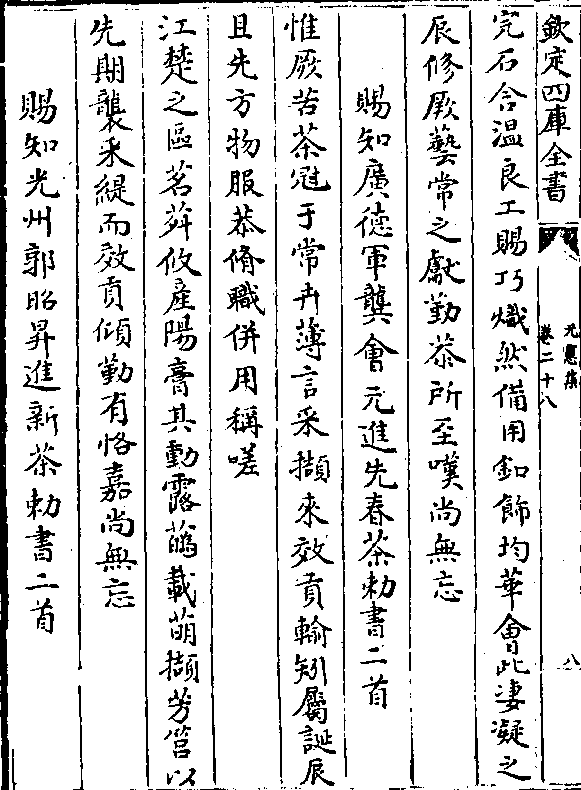 欽定四庫全書
元憲集
卷二十八
八
完石含溫良工賜巧熾然備用釦飾均華會此凄凝之
辰修厥藝常之獻勤恭所至嘆尚無忘
賜知廣德軍龔會元進先春茶勅書二首
惟厥苦茶冠于常卉薄言采擷來效貢輸矧屬誕辰
且先方物服恭脩職併用稱嗟
江楚之區茗荈攸產陽膏其動露蘤載萌擷芳筥以
先期襲采緹而效貢傾勤有恪嘉尚無忘
賜知光州郭昭昇進新茶勅書二首